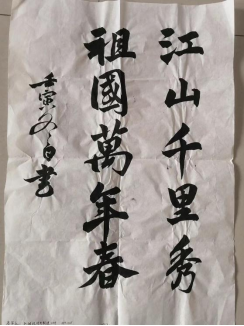 江山千里秀
祖國萬年春
壬寅夕自書